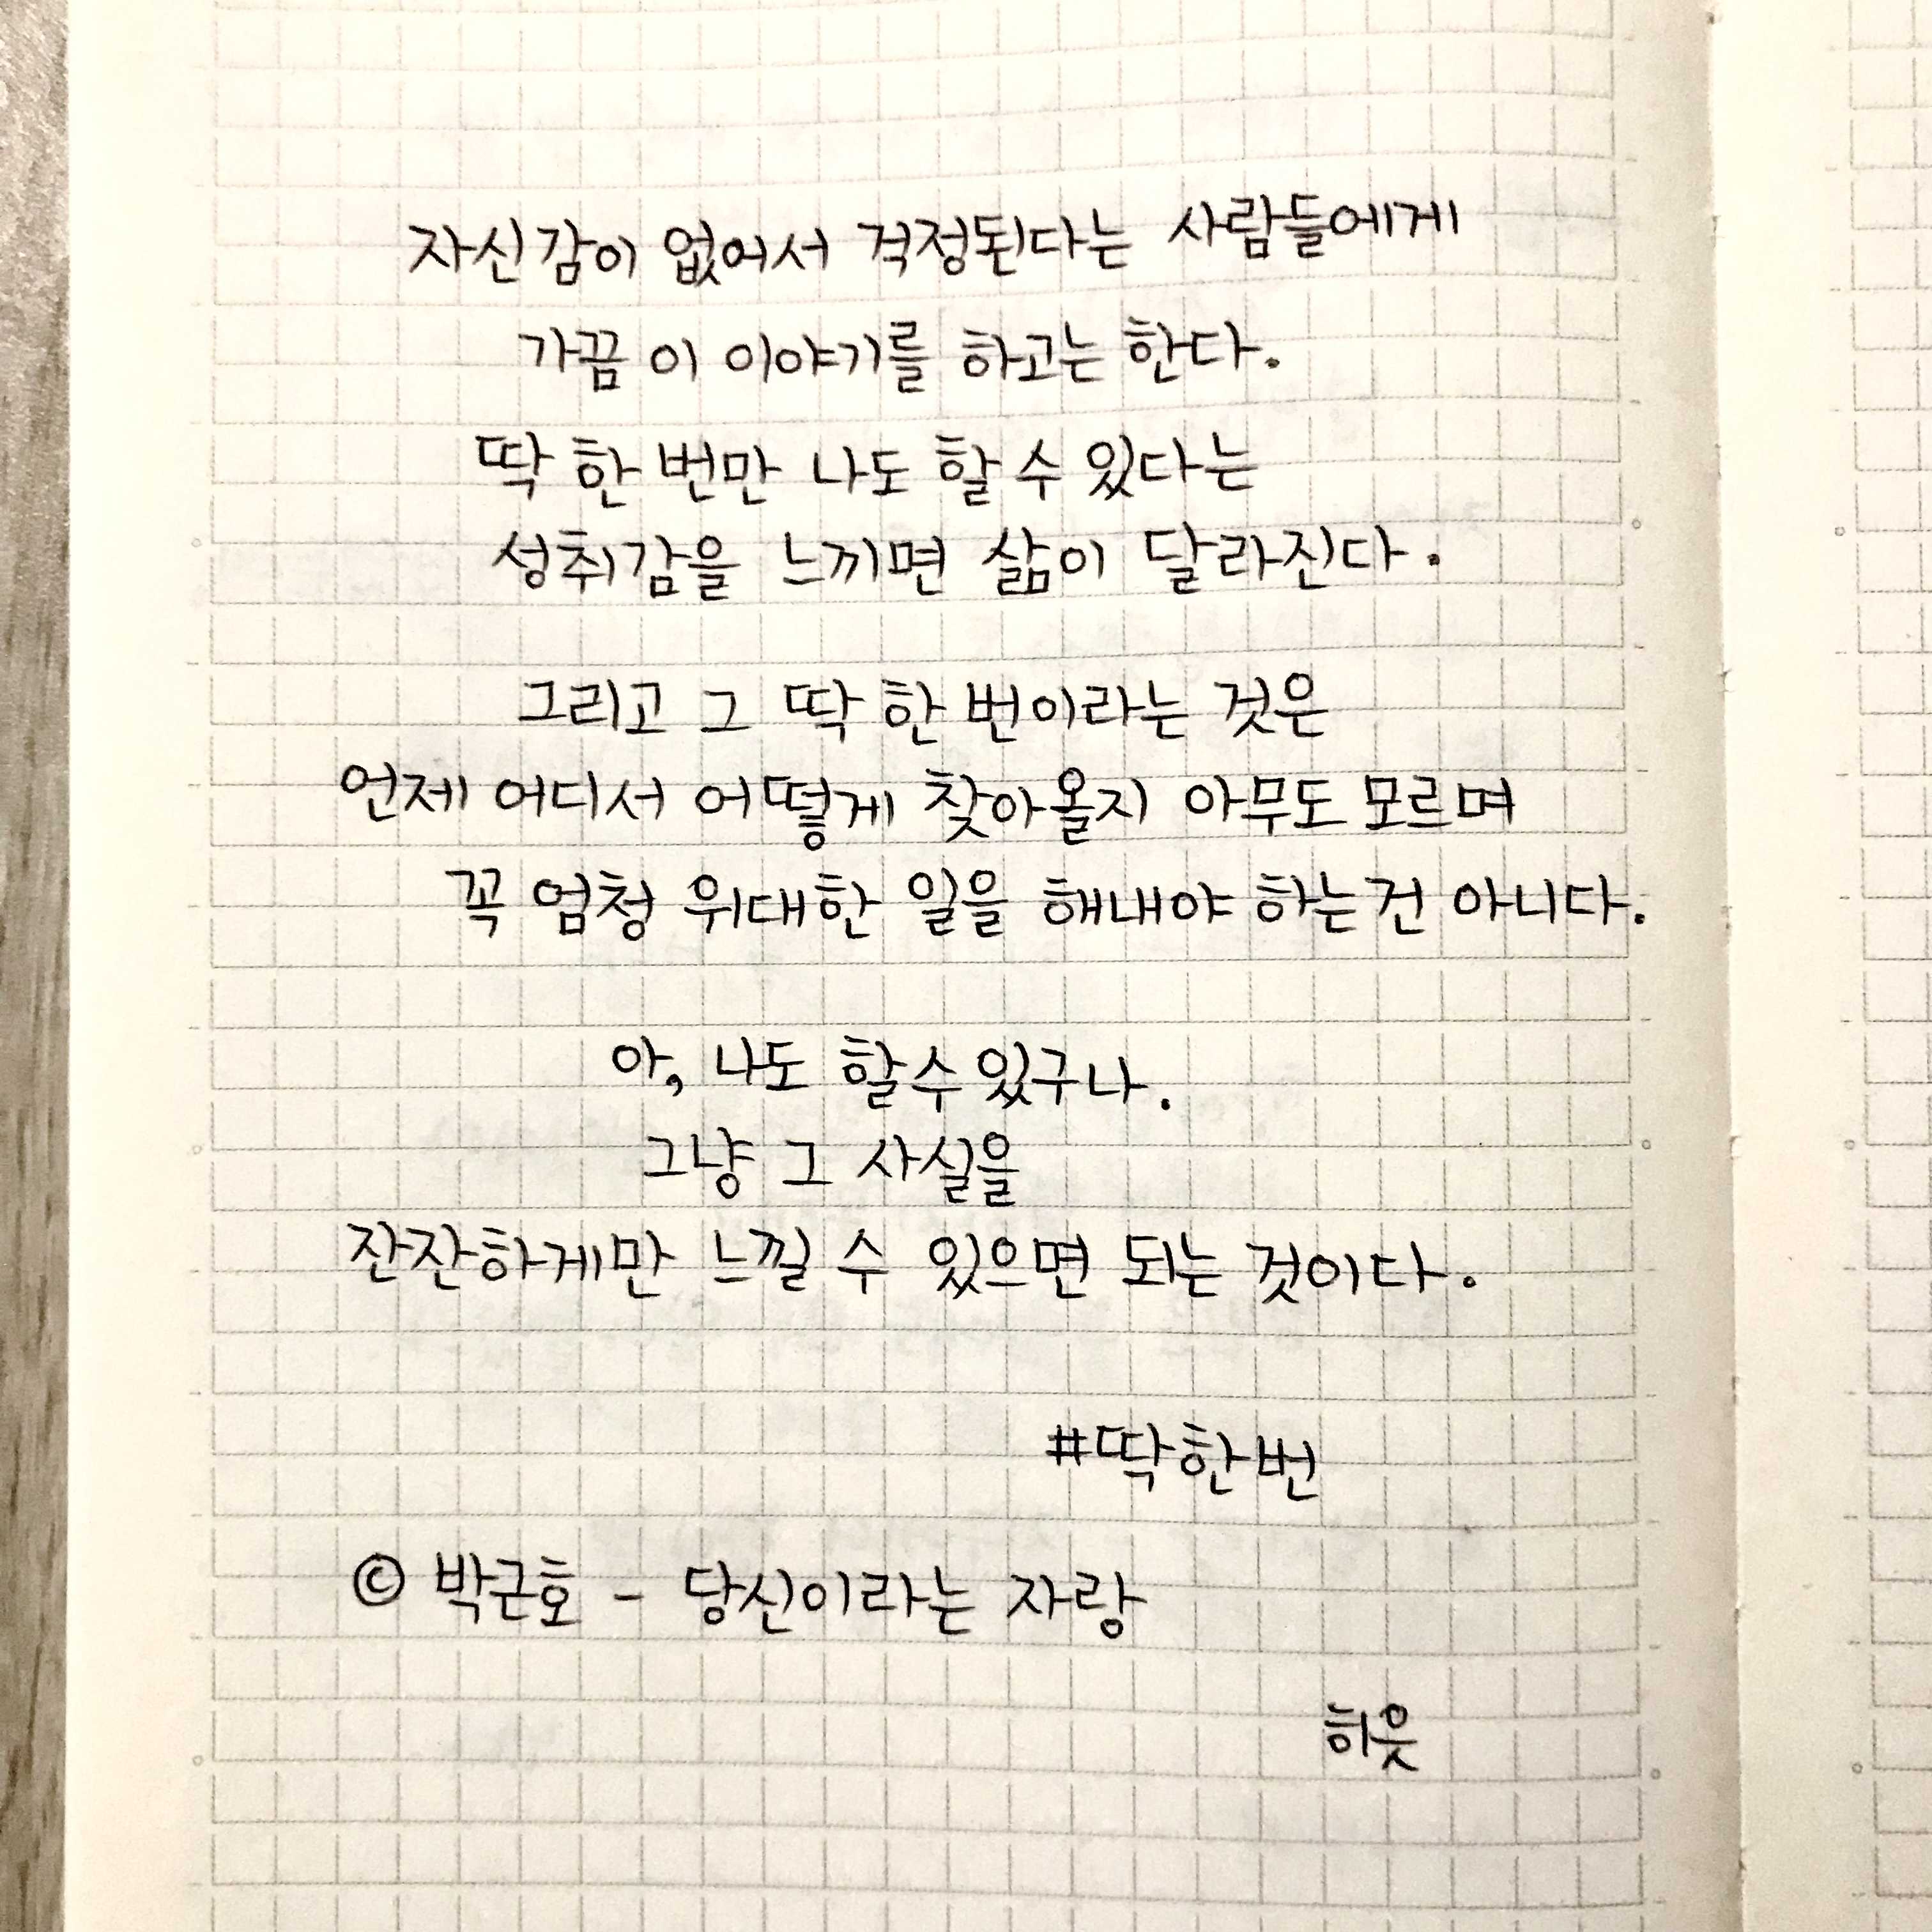 자신감이 없어서 걱정된다는 사람들에게
가끔 이 이야기를 하고는 한다.
딱 한 번만 나도 할 수 있다는
성취감을 느끼면 삶이 달라진다.
그리고 그 딱 한 번이라는 것은
언제 어디서 어떻게 찾아올지 아무도 모르며
꼭 엄청 위대한 일을 해내야 하는건 아니다.
아, 나도 할수있구나.
그냥 그 사실을
잔잔하게만 느낄 수 있으면 되는 것이다.
#딱한번
© 박근호 - 당신이라는 자랑
히읏